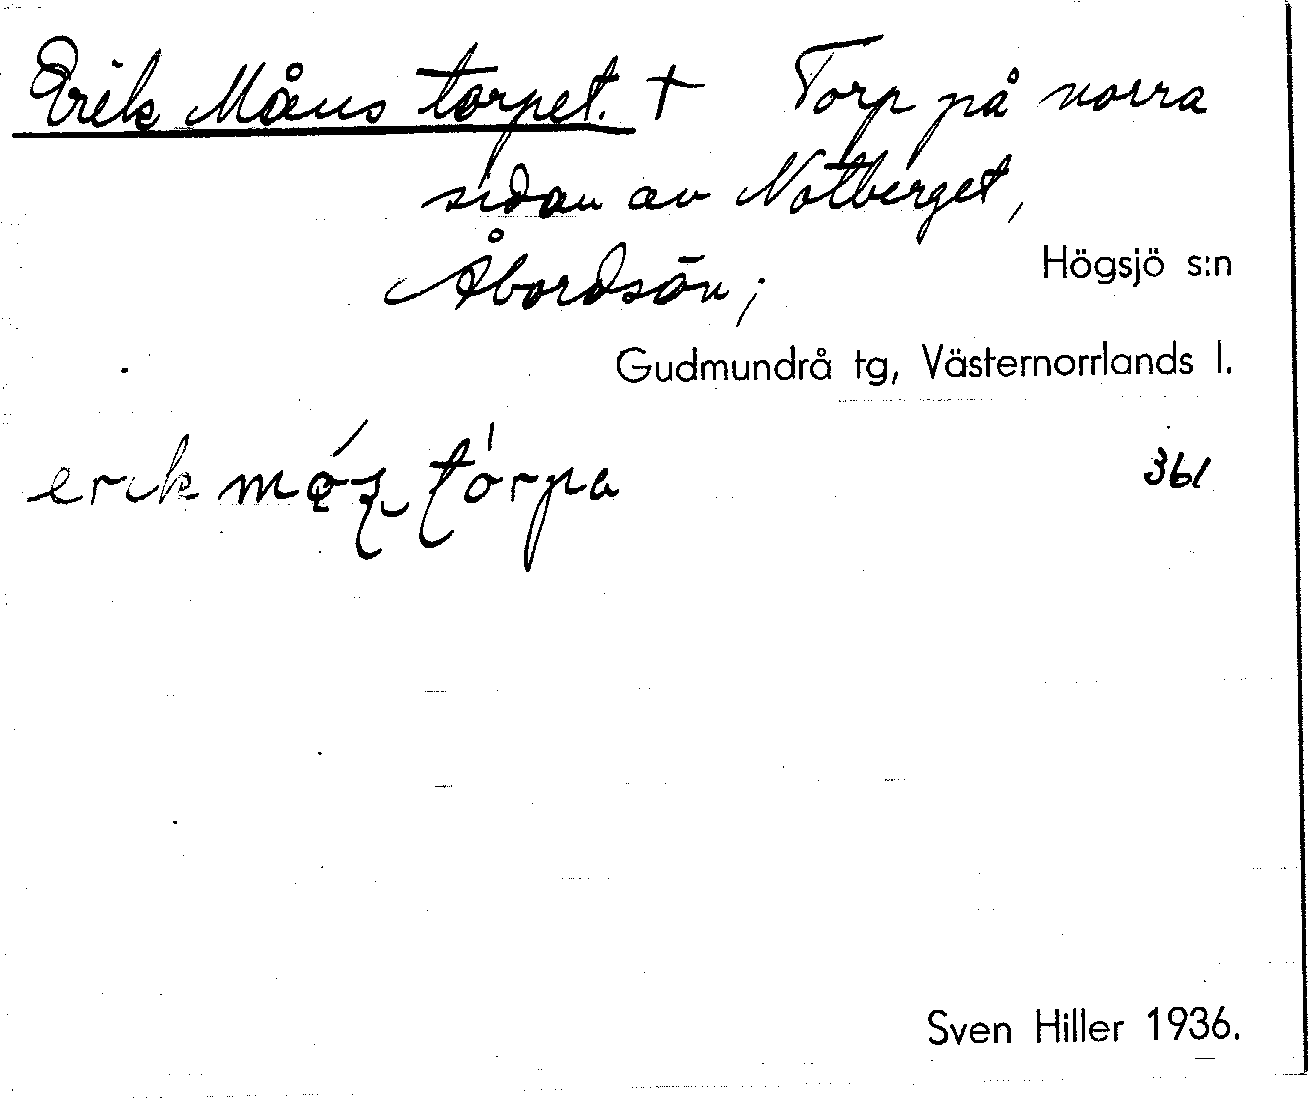 Erik Måns torpet. † Torp på norra
sidan av Notberget,
Åbordsön;
Högsjö s:n
Gudmundrå tg, Västernorrlands l.
erik tórpa
361
Sven Hiller 1936.